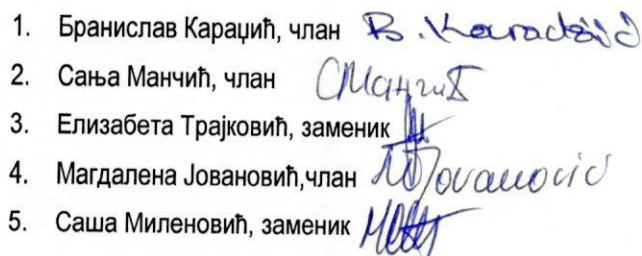 1. Бранислав Караџић, члан B. Karadžić
2. Сања Манчић, члан СМанчић
3. Елизабета Трајковић, заменик
4. Магдалена Јовановић,члан MJovanović
5. Саша Миленовић, заменик